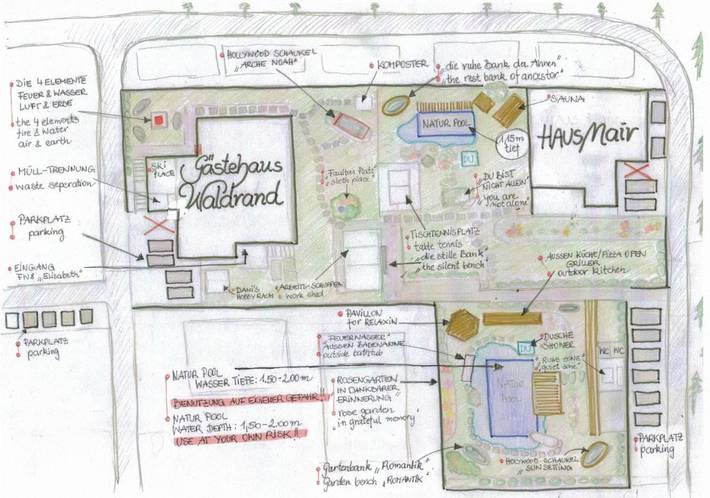 HOLLYWOOD SCHAUKEL
„ARCHE NOAH"
KOMPOSTER
die ruhe Bank der Ahnen
„the rest bank of ancestor"
DIE 4 ELEMENTE
FEUER & WASSER
LUFT & ERDE
the 4 elements
fire & water
air & earth
SAUNA
NATUR POOL
1,15m
tief
HAUS Mair
SKI
PLACE
Gästehaus
Waldrand
MÜLL-TRENNUNG
waste seperation
DU
„Faulbär Platz"
sloth place
DU BIST
NICHT ALLEIN"
you are
not alone"
PARKPLATZ
parking
TISCHTENNISPLATZ
table tennis
„die stille Bank"
„the silent bench"
EINGANG
FW8 „Elisabeth"
DANIS
HOBBYRAUM
ARBEITS-SCHUPPEN
work shed
AUSSEN KÜCHE/PIZZA OPEN
GRILLER
outdoor kitchen
PARKPLATZ
parking
PAVILLON
for RELAXIN
„FEUERWASSER"
AUSSEN BADEWANNE
outside bathtub
DUSCHE
SHOWER
DU
„RUHE ZONE"
„quiet zone"
WC
WC
NATUR POOL
WASSER TIEFE: 1,50-2,00 m
BENUTZUNG AUF EIGENER GEFAHR!!
NATUR POOL
WATER DEPTH: 1,50-2,00 m
USE AT YOUR OWN RISK!!
ROSENGARTEN
IN DANKBARER
ERINNERUNG"
„rose garden
in grateful memory"
NATUR
POOL
PARKPLATZ
parking
Gartenbank „Romantik"
Garden bench „ROMANTIK"
HOLYWOOD-SCHAUKEL
„SUNSETTING"